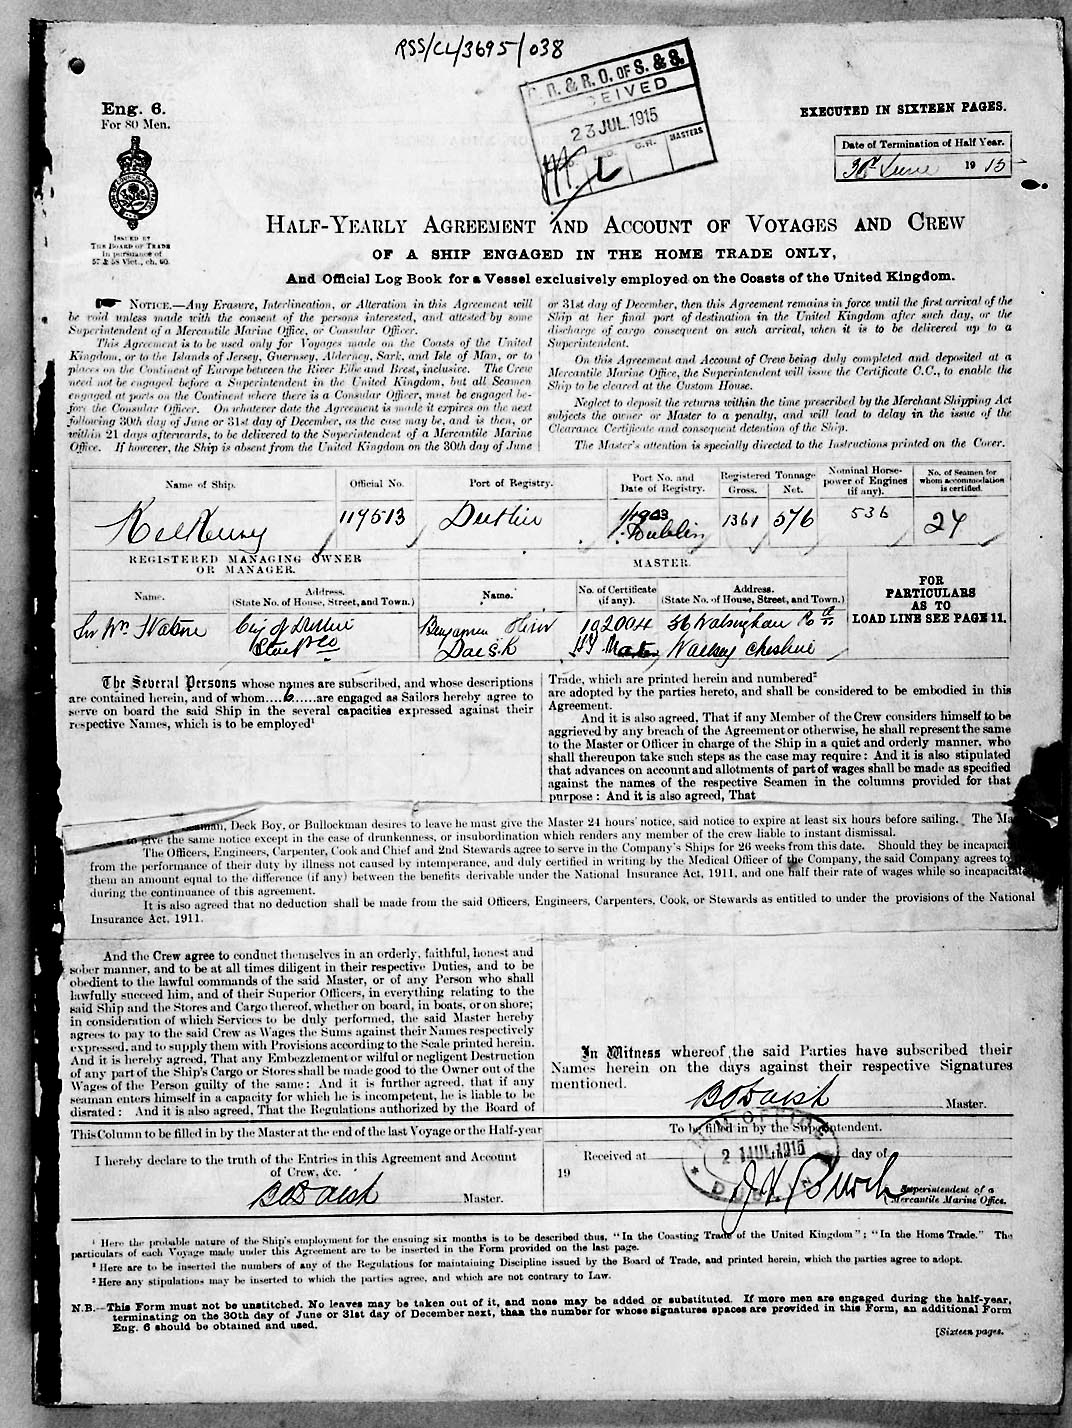 RSS/CL/3695/038
R.O. OF S. & S.
23 JUL. 1915
C.R.
MASTERS
Eng. 6.
For 80 Men.
EXECUTED IN SIXTEEN PAGES.
Date of Termination of Half Year.
30th June 1915
ISSUED BY
THE BOARD OF TRADE
In pursuance of
57 & 58 Vict., ch. 60.
HALF-YEARLY AGREEMENT AND ACCOUNT OF VOYAGES AND CREW
OF A SHIP ENGAGED IN THE HOME TRADE ONLY,
And Official Log Book for a Vessel exclusively employed on the Coasts of the United Kingdom.
NOTICE.—Any Erasure, Interlineation, or Alteration in this Agreement will
be void unless made with the consent of the persons interested, and attested by some
Superintendent of a Mercantile Marine Office, or Consular Officer.
This Agreement is to be used only for Voyages made on the Coasts of the United
Kingdom, or to the Islands of Jersey, Guernsey, Alderney, Sark, and Isle of Man, or to
places on the Continent of Europe between the River Elbe and Brest, inclusive. The Crew
need not be engaged before a Superintendent in the United Kingdom, but all Seamen
engaged at ports on the Continent where there is a Consular Officer, must be engaged be-
fore the Consular Officer. On whatever date the Agreement is made it expires on the next
following 30th day of June or 31st day of December, as the case may be, and is then, or
within 21 days afterwards, to be delivered to the Superintendent of a Mercantile Marine
Office. If however, the Ship is absent from the United Kingdom on the 30th day of June
or 31st day of December, then this Agreement remains in force until the first arrival of the
Ship at her final port of destination in the United Kingdom after such day, or the
discharge of cargo consequent on such arrival, when it is to be delivered up to a
Superintendent.
On this Agreement and Account of Crew being duly completed and deposited at a
Mercantile Marine Office, the Superintendent will issue the Certificate C.C., to enable the
Ship to be cleared at the Custom House.
Neglect to deposit the returns within the time prescribed by the Merchant Shipping Act
subjects the owner or Master to a penalty, and will lead to delay in the issue of the
Clearance Certificate and consequent detention of the Ship.
The Master's attention is specially directed to the Instructions printed on the Cover.
Name of Ship. Official No. Port of Registry. Port No. and Date of Registry. Registered Tonnage Gross. Net. Nominal Horse-power of Engines (if any). No. of Seamen for whom accommodation is certified.
Kilkenny 119513 Dublin 1/1903 Dublin 1361 576 536 24
REGISTERED MANAGING OWNER
OR MANAGER.
MASTER.
Name. Address. (State No. of House, Street, and Town.) Name. No. of Certificate (if any). Address. (State No. of House, Street, and Town.)
Sir Wm Watson City of Dublin Benjamin 56 Walsingham Rd
Wallasey Cheshire
FOR
PARTICULARS
AS TO
LOAD LINE SEE PAGE 11.
The Several Persons whose names are subscribed, and whose descriptions
are contained herein, and of whom....6......are engaged as Sailors hereby agree to
serve on board the said Ship in the several capacities expressed against their
respective Names, which is to be employed¹
Trade, which are printed herein and numbered²
are adopted by the parties hereto, and shall be considered to be embodied in this
Agreement.
And it is also agreed, That if any Member of the Crew considers himself to be
aggrieved by any breach of the Agreement or otherwise, he shall represent the same
to the Master or Officer in charge of the Ship in a quiet and orderly manner, who
shall thereupon take such steps as the case may require: And it is also stipulated
that advances on account and allotments of part of wages shall be made as specified
against the names of the respective Seamen in the columns provided for that
purpose: And it is also agreed, That
Deck Boy, or Bullockman desires to leave he must give the Master 24 hours' notice, said notice to expire at least six hours before sailing. The
to give the same notice except in the case of drunkenness, or insubordination which renders any member of the crew liable to instant dismissal.
The Officers, Engineers, Carpenter, Cook and Chief and 2nd Stewards agree to serve in the Company's Ships for 26 weeks from this date. Should they be
from the performance of their duty by illness not caused by intemperance, and duly certified in writing by the Medical Officer of the Company, the said Company agrees to
them an amount equal to the difference (if any) between the benefits derivable under the National Insurance Act, 1911, and one half their rate of wages while so
during the continuance of this agreement.
It is also agreed that no deduction shall be made from the said Officers, Engineers, Carpenters, Cook, or Stewards as entitled to under the provisions of the National
Insurance Act, 1911.
And the Crew agree to conduct themselves in an orderly, faithful, honest and
sober manner, and to be at all times diligent in their respective Duties, and to be
obedient to the lawful commands of the said Master, or of any Person who shall
lawfully succeed him, and of their Superior Officers, in everything relating to the
said Ship and the Stores and Cargo thereof, whether on board, in boats, or on shore;
in consideration of which Services to be duly performed, the said Master hereby
agrees to pay to the said Crew as Wages the Sums against their Names respectively
expressed, and to supply them with Provisions according to the Scale printed herein.
And it is hereby agreed, That any Embezzlement or wilful or negligent Destruction
of any part of the Ship's Cargo or Stores shall be made good to the Owner out of the
Wages of the Person guilty of the same: And it is further agreed, that if any
seaman enters himself in a capacity for which he is incompetent, he is liable to be
disrated: And it is also agreed, That the Regulations authorized by the Board of
In Witness whereof the said Parties have subscribed their
Names herein on the days against their respective Signatures
mentioned.
Master.
This Column to be filled in by the Master at the end of the last Voyage or the Half-year
I hereby declare to the truth of the Entries in this Agreement and Account
of Crew, &c.
Master.
To be filled in by the Superintendent.
Received at day of
19
OFFICE
21 JUL. 1915
DUBLIN
Superintendent of a
Mercantile Marine Office.
¹ Here the probable nature of the Ship's employment for the ensuing six months is to be described thus, "In the Coasting Trade of the United Kingdom"; "In the Home Trade." The
particulars of each Voyage made under this Agreement are to be inserted in the Form provided on the last page.
² Here are to be inserted the numbers of any of the Regulations for maintaining Discipline issued by the Board of Trade, and printed herein, which the parties agree to adopt.
³ Here any stipulations may be inserted to which the parties agree, and which are not contrary to Law.
N.B.—This Form must not be unstitched. No leaves may be taken out of it, and none may be added or substituted. If more men are engaged during the half-year,
terminating on the 30th day of June or 31st day of December next, than the number for whose signatures spaces are provided in this Form, an additional Form
Eng. 6 should be obtained and used.
[Sixteen pages.